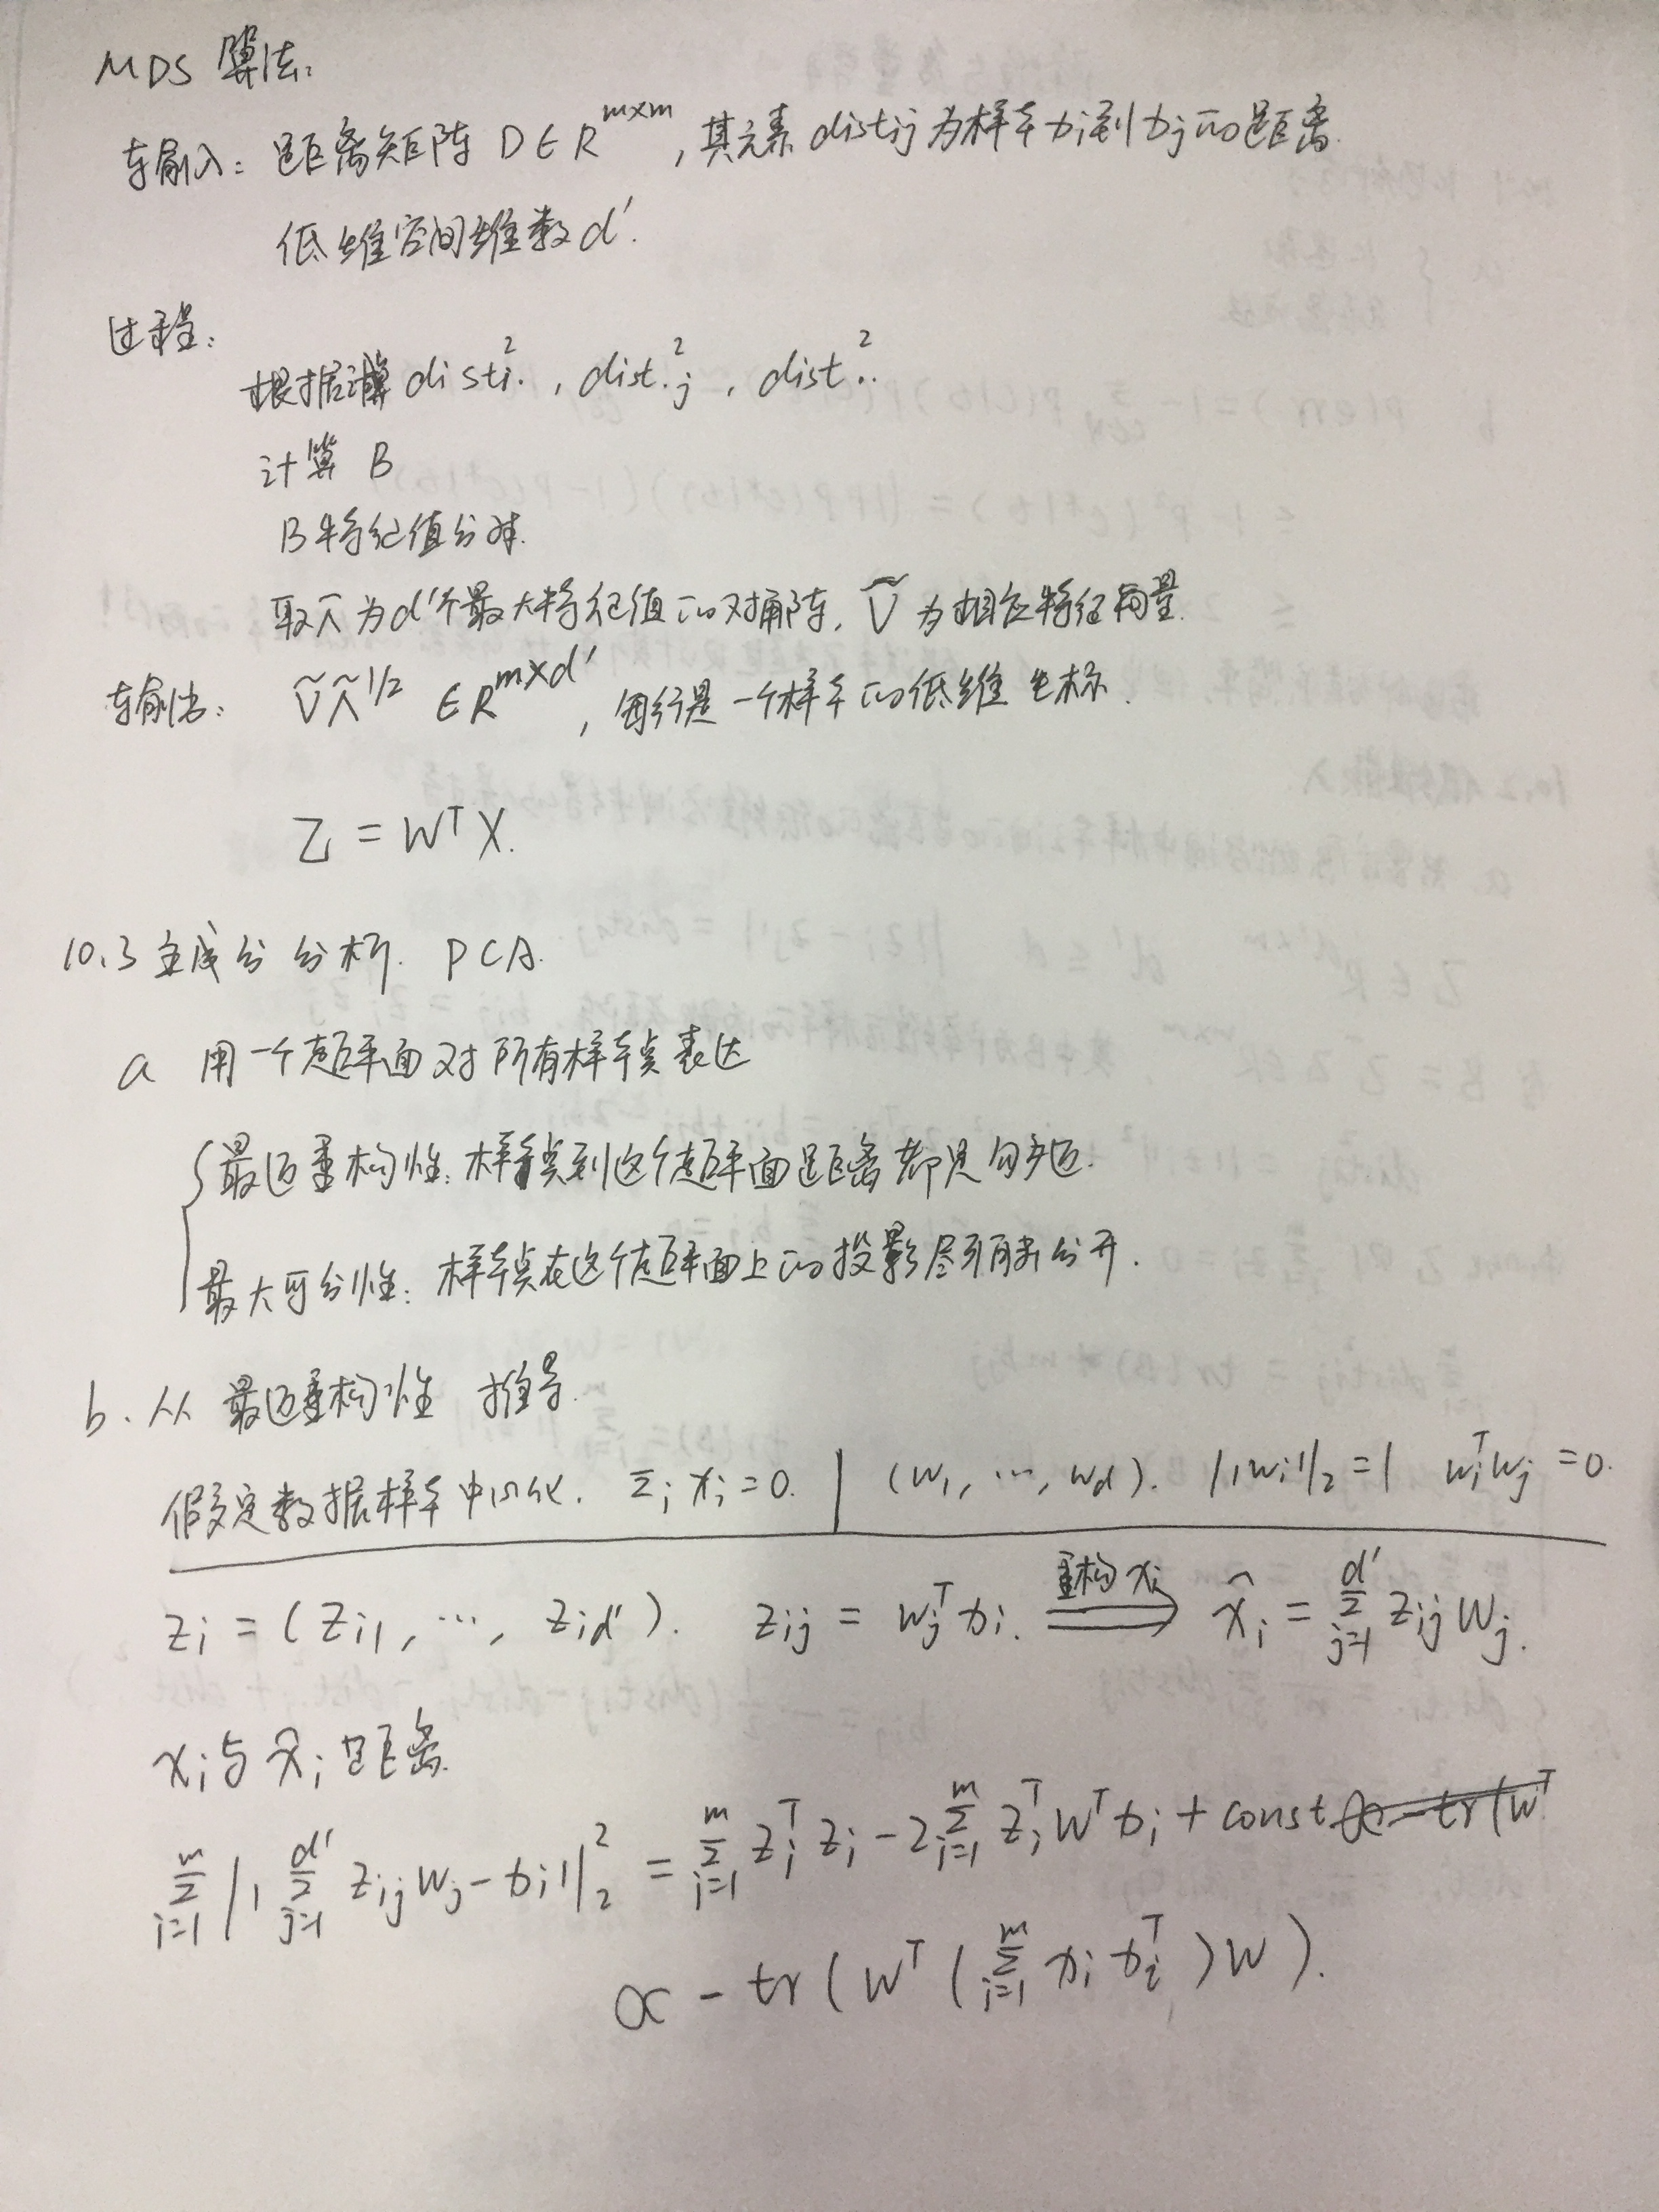 MDS 算法:
输入: 距离矩阵 D∈R^{m×m}, 其元素 dist_{ij} 为样本 x_i 到 x_j 的距离.
低维空间维数 d'.
过程:
根据计算 dist_{i.}^2, dist_{.j}^2, dist_{..}^2
计算 B
B 特征值分解.
取 Λ̃ 为 d' 个最大特征值的对角阵, Ṽ 为相应特征向量.
输出: ṼΛ̃^{1/2} ∈R^{m×d'}, 每行是一个样本的低维坐标.
Z = W^T X.
10.3 主成分分析. PCA.
a 用一个超平面对所有样本点表达
最近重构性: 样本点到这个超平面距离都足够近.
最大可分性: 样本点在这个超平面上的投影尽可能分开.
b. 从 最近重构性 推导.
假定数据样本中心化. Σ_i x_i = 0. | (w_1, …, w_d). ||w_i||_2 = 1 w_i^T w_j = 0.
z_i = (z_{i1}, …, z_{id'}). z_{ij} = w_j^T x_i. 重构 x_i ⟹ x̂_i = Σ_{j=1}^{d'} z_{ij} w_j.
x_i 与 x̂_i 距离.
Σ_{i=1}^{m} ||Σ_{j=1}^{d'} z_{ij} w_j - x_i||_2^2 = Σ_{i=1}^{m} z_i^T z_i - 2Σ_{i=1}^{m} z_i^T W^T x_i + const ∝ - tr(W^T
∝ - tr(W^T (Σ_{i=1}^{m} x_i x_i^T) W).